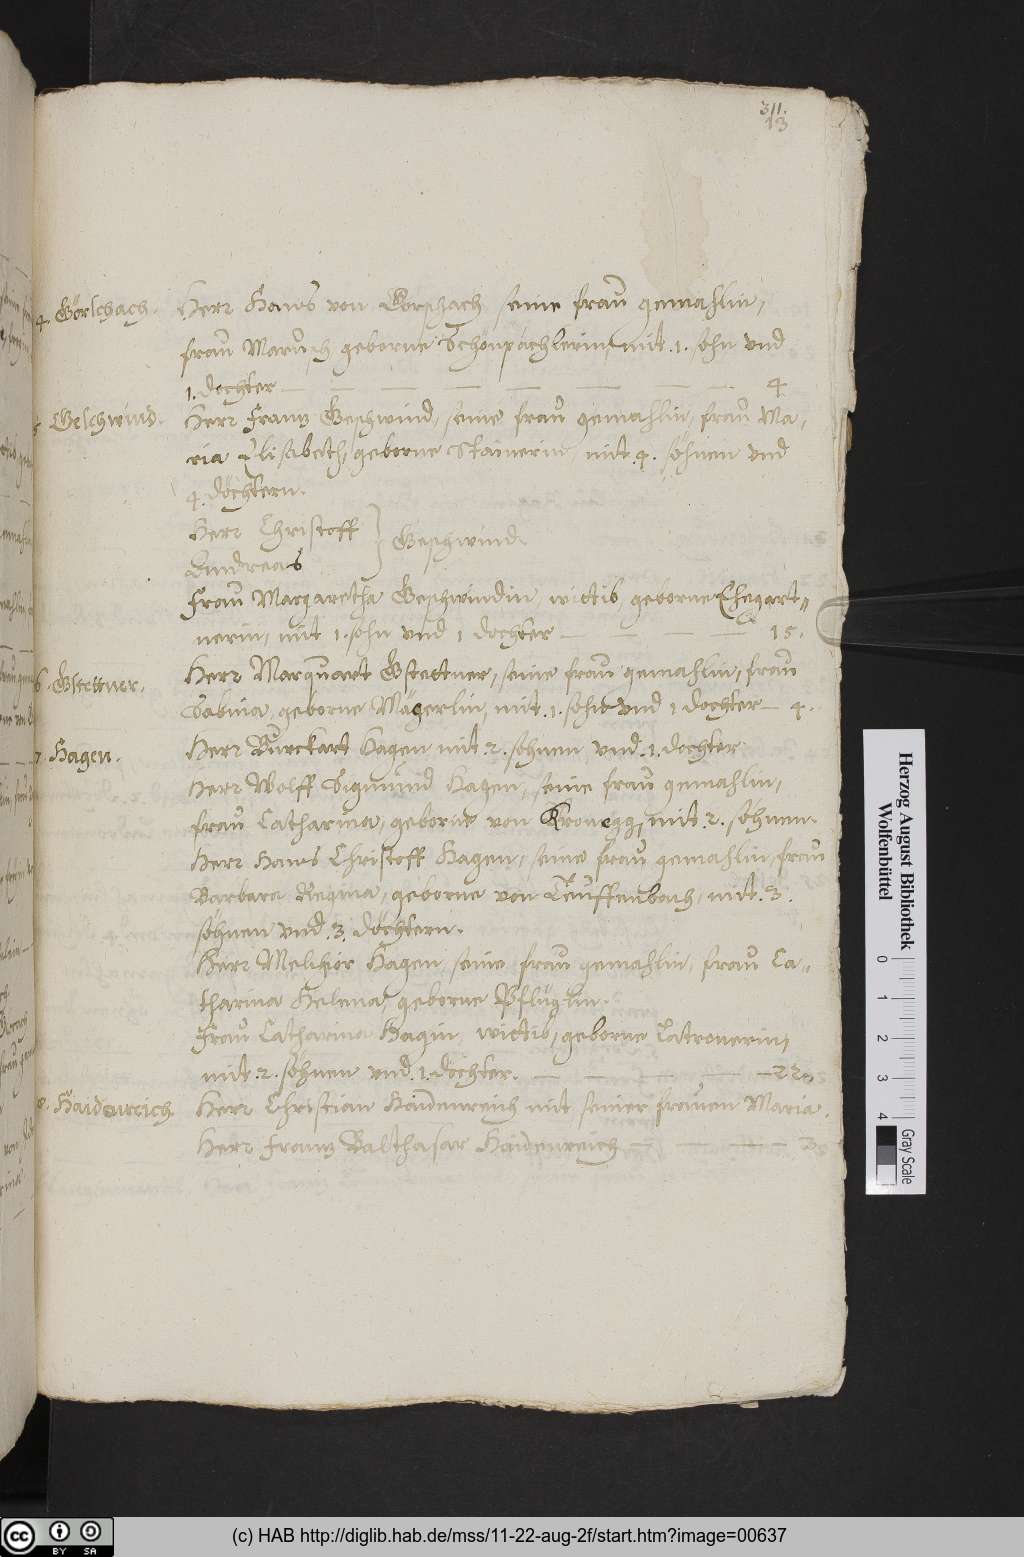 311.
13
4. Görtschach. Herr Hanns von Görtschach, seine frau gemahlin,
frau Marusch geborne Schönpächlerin, mit .1. sohn vnd
1. dochter — 4
5 Geschwind. Herr Franz Geschwind, seine frau gemahlin, frau Ma-
ria Elisabeth, geborne Stainerin mit 4. söhnen vnd
4. döchtern.
Herr Christoff
Andreas } Geschwind.
Frau Margaretha Geschwindin, wittib, geborne Ehegart-
nerin, mit 1. sohn vnd 1 dochter — 15.
6. Gstettner. Herr Marquart Gstettner, seine frau gemahlin, frau
Sabina, geborne Mägerlin, mit .1. sohn vnd 1 dochter — 4.
7. Hagen. Herr Burckart Hagen mit .2. söhnen vnd .1. dochter
Herr Wolff Sigmund Hagen, seine frau gemahlin,
frau Catharina, geborne von Kronegg, mit .2. söhnen.
Herr Hanns Christoff Hagen, seine frau gemahlin, frau
Barbara Regina, geborne von Teuffenbach, mit .3.
söhnen vnd .3. döchtern.
Herr Melchior Hagen, seine frau gemahlin, frau Ca-
tharina Helena, geborne Pflüglin.
Frau Catharina Hagin, wittib, geborne Catronerin,
mit .2. söhnen vnd .1. dochter. — 22.
8. Haidenreich Herr Christian Haidenreich mit seiner frauen Maria.
Herr Franz Balthasar Haidenreich —
Herzog August Bibliothek
Wolfenbüttel
0 1 2 3 4
Gray Scale
cc BY SA
(c) HAB http://diglib.hab.de/mss/11-22-aug-2f/start.htm?image=00637